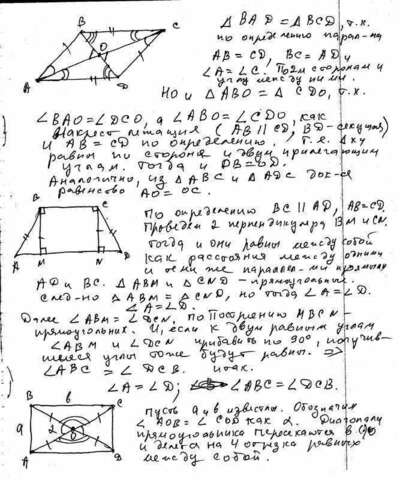 △BAD = △BCD, т.к.
по определению парал-ма
AB = CD, BC = AD и
∠A = ∠C. По 2м сторонам и
углу между ними.
Но и △ABO = △CDO, т.к.
∠BAO = ∠DCO, а ∠ABO = ∠CDO, как
Накрест лежащие (AB || CD, BD - секущая)
и AB = CD по определению. Т.е. △ки
равны по стороне и двум прилежащим
углам. Тогда и OB = OD.
Аналогично, из △ABC и △ADC док-ся
равенство AO = OC.
По определению BC || AD, AB = CD.
Проведем 2 перпендикуляра BM и CN.
тогда и они равны между собой
как расстояния между одними
и теми же параллел-ми прямыми
AD и BC. △ABM и △CND - прямоугольные.
След-но △ABM = △CND, но тогда ∠A = ∠D.
∠A = ∠D.
Далее ∠ABM = ∠DCN, по построению MBCN
прямоугольник. И, если к двум равным углам
∠ABM и ∠DCN прибавить по 90°, получив-
шиеся углы тоже будут равны. ⇒
∠ABC = ∠DCB. итак.
∠A = ∠D; ∠ABC = ∠DCB.
Пусть a и b известны. Обозначим
∠AOB = ∠COD как α. Диагонали
прямоугольника пересекаются в (.)O
и делятся на 4 отрезка равных
между собой.
B C
O
A D
B C
A M N D
B b C
a α
O
A D